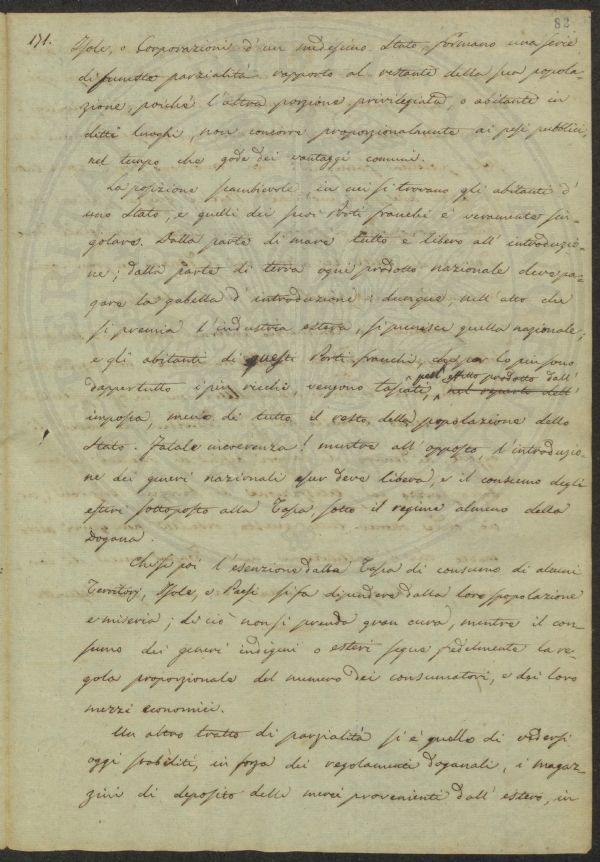 82
171.
Isole, o Corporazioni d'un medesimo Stato, formano una serie
di funeste parzialità rapporto al restante della sua popola-
zione, poiché l'altra porzione privilegiata, o abitante in
detti luoghi, non concorre proporzionalmente ai pesi pubblici,
nel tempo che gode dei vantaggi comuni.
La posizione scambievole, in cui si trovano gli abitanti d'
uno Stato, e quelli dei suoi Porti franchi è veramente sin-
golare. Dalla parte di mare tutto è libero all'introduzio-
ne; dalla parte di terra ogni prodotto nazionale deve pa-
gare la gabella d'introduzione: dunque nell'atto che
si premia l'industria estera, si punisce quella nazionale;
e gli abitanti di questi Porti franchi, che per lo più sono
dappertutto i più ricchi, vengono tassati, nel reparto dell'
pell' effetto prodotto dall'
imposta, meno di tutto il resto della popolazione dello
Stato. Fatale incoerenza! mentre all'opposto, l'introduzio-
ne dei generi nazionali esser deve libera, e il consumo degli
esteri sottoposto alla Tassa sotto il regime almeno della
Dogana.
Chesi poi l'esenzione dalla Tassa di consumo di alcuni
Territorj, Isole, e Paesi si fa dipendere dalla loro spopolazione
e miseria; di ciò non si prenda gran cura, mentre il con-
sumo dei generi indigeni o esteri segue fedelmente la re-
gola proporzionale del numero dei consumatori, e dei loro
mezzi economici.
Un altro tratto di parzialità si è quello di vedersi
oggi stabiliti, in forza dei regolamenti doganali, i magaz-
zini di deposito delle merci provenienti dall'estero, in